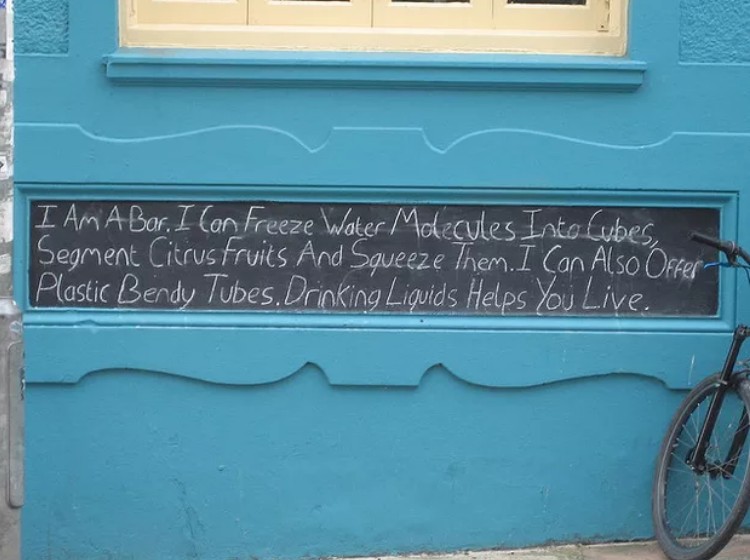 I Am A Bar. I Can Freeze Water Molecules Into Cubes,
Segment Citrus Fruits And Squeeze Them. I Can Also Offer
Plastic Bendy Tubes. Drinking Liquids Helps You Live.